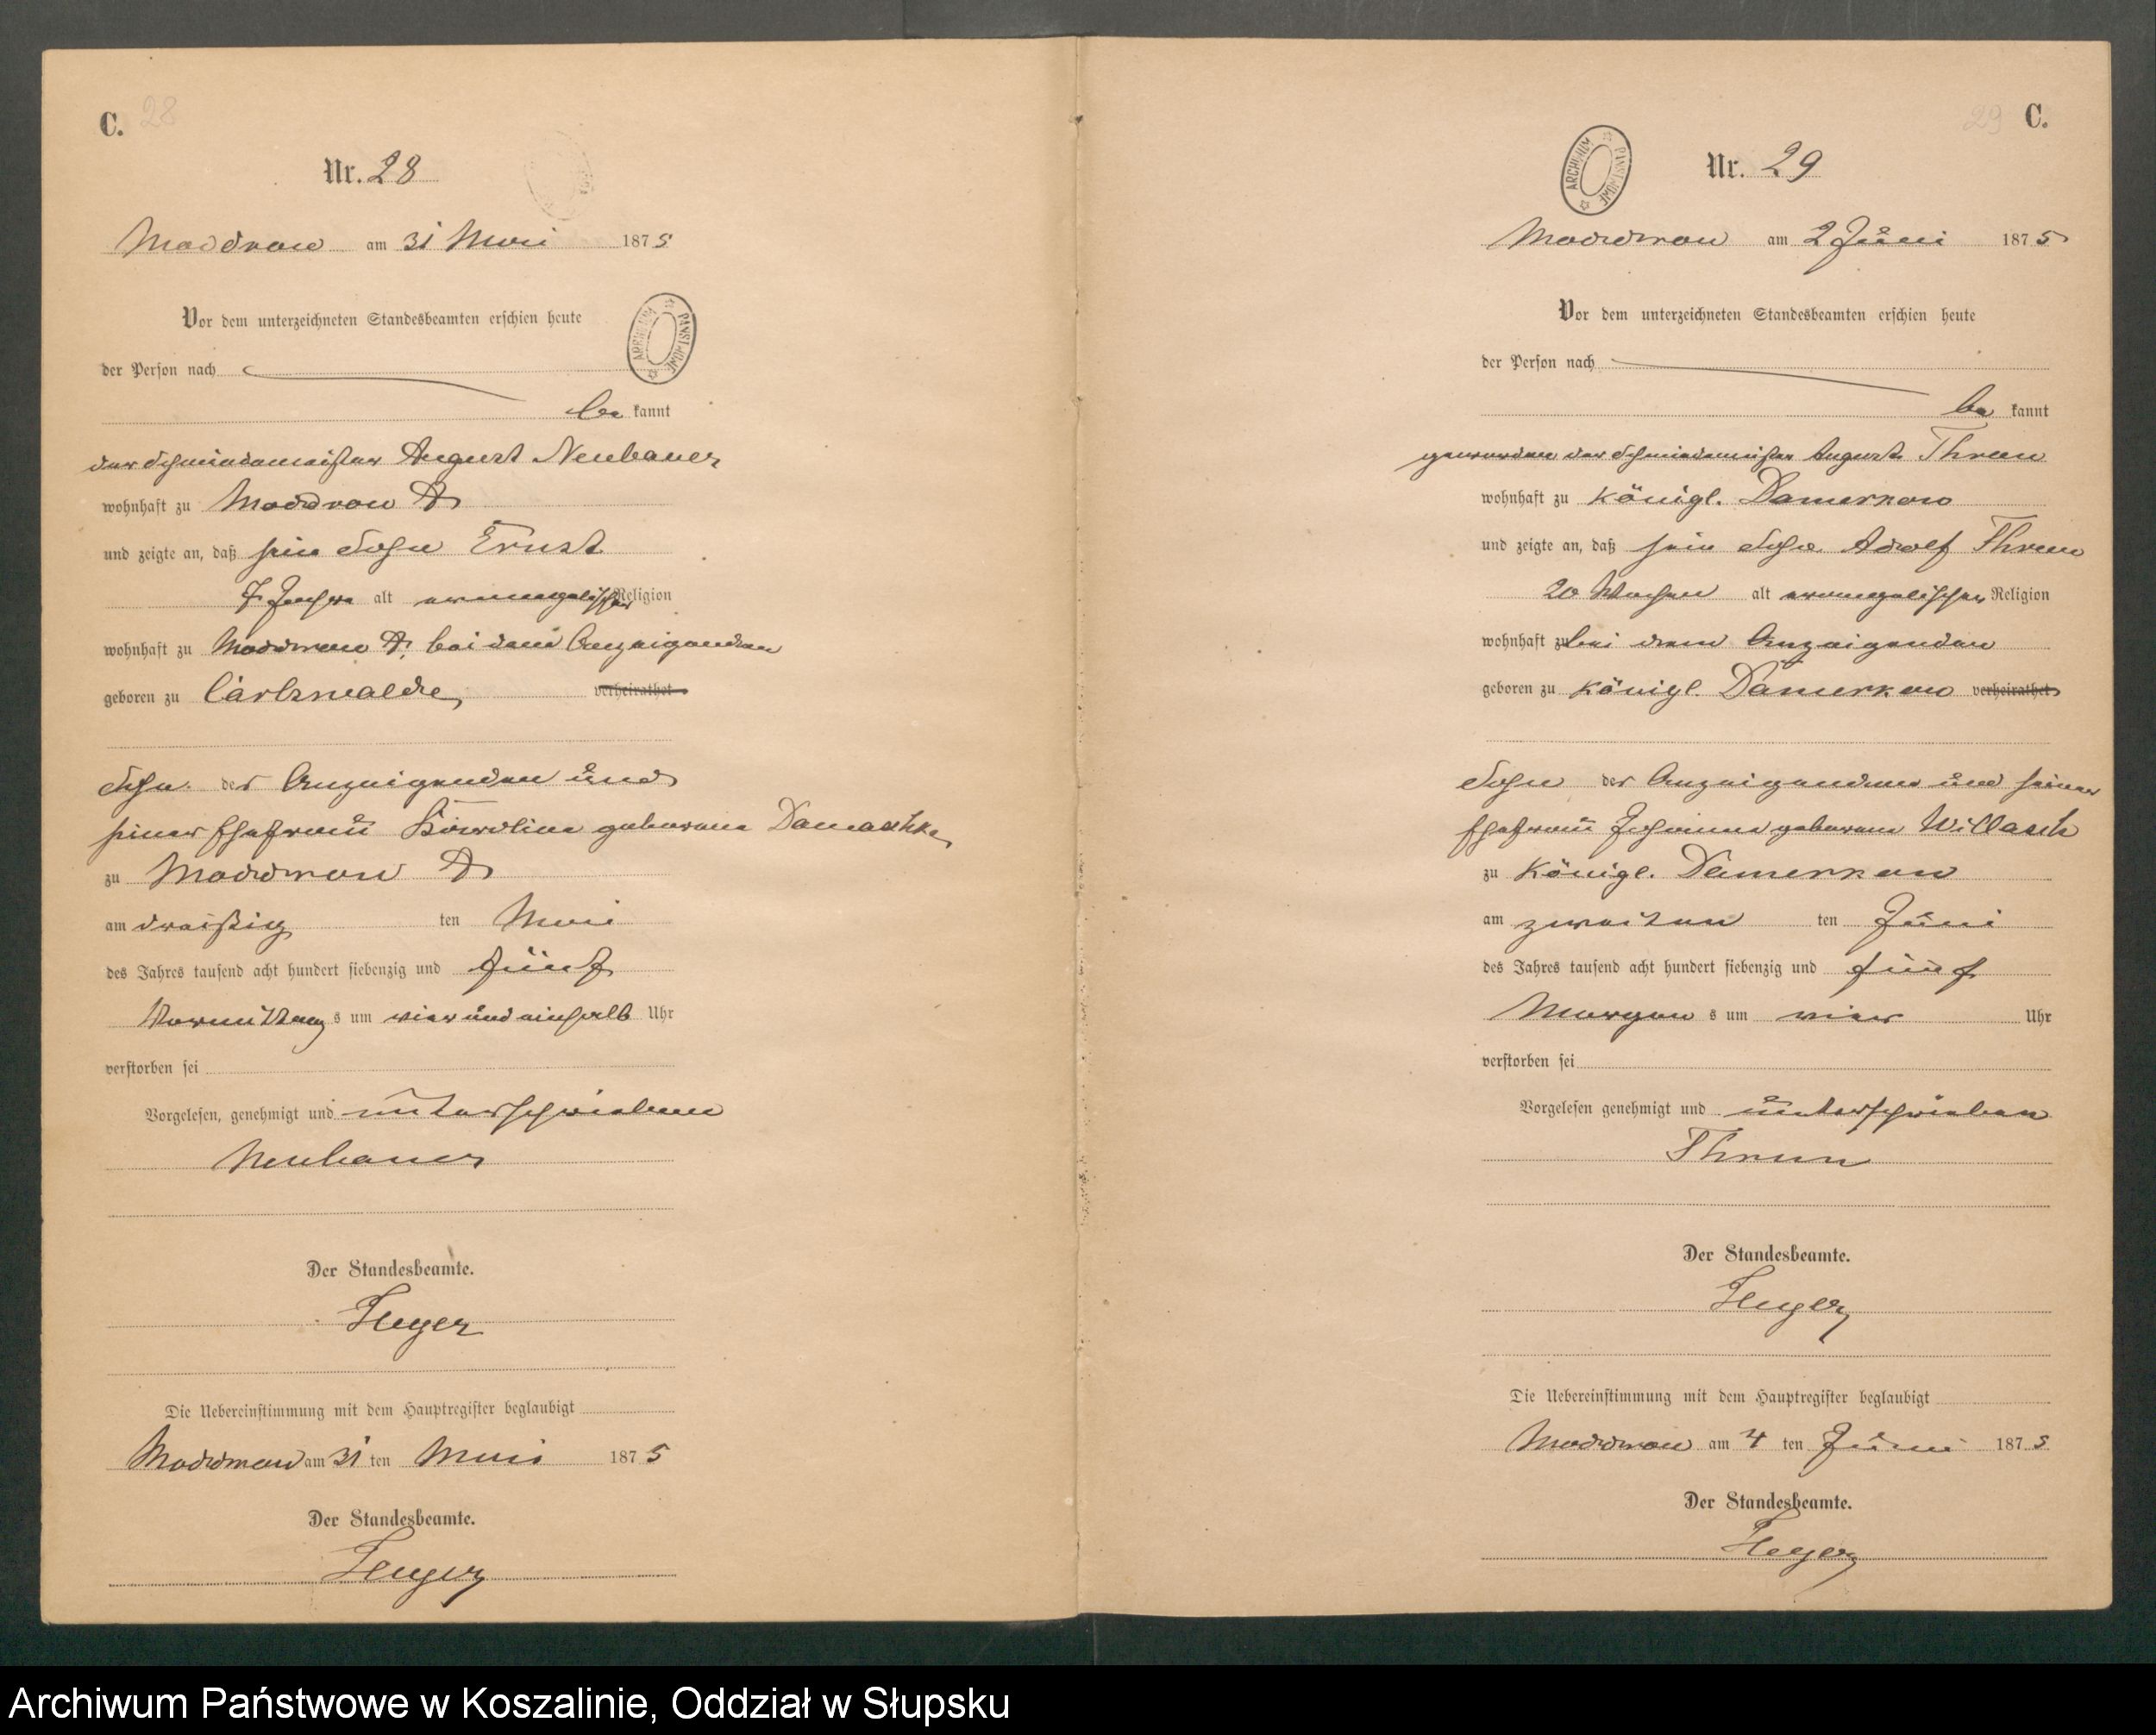 C. 28
Nr. 28
Moddrow am 31 Mai 1875
Vor dem unterzeichneten Standesbeamten erschien heute
der Person nach
be kannt
der Schmiedemeister August Neubauer
wohnhaft zu Moddrow A
und zeigte an, daß sein Sohn Ernst
7 Jahre alt evangelischer Religion
wohnhaft zu Moddrow A, bei dem Anzeigenden
geboren zu Carlswalde, verheirathet
Sohn des Anzeigenden und
seiner Ehefrau Karoline geborene Damaschke
zu Moddrow A
am dreißig ten Mai
des Jahres tausend acht hundert siebenzig und fünf
Vormittag s um vier und einhalb Uhr
verstorben sei
Vorgelesen, genehmigt und unterschrieben
Neubauer
Der Standesbeamte.
Heyer
Die Uebereinstimmung mit dem Hauptregister beglaubigt
Moddrow am 31 ten Mai 1875
Der Standesbeamte.
Heyer
29 C.
ARCHIWUM PAŃSTWOWE
Nr. 29
Moddrow am 2 Juni 1875
Vor dem unterzeichneten Standesbeamten erschien heute
der Person nach
be kannt
der Schmiedemeister August Thrun
wohnhaft zu Königl. Damerkow
und zeigte an, daß sein Sohn Adolf Thrun
20 Wochen alt evangelischer Religion
wohnhaft zu bei dem Anzeigenden
geboren zu Königl. Damerkow verheirathet
Sohn des Anzeigenden und seiner
Ehefrau Johanne geborene Willasch
zu Königl. Damerkow
am zweiten ten Juni
des Jahres tausend acht hundert siebenzig und fünf
Morgen s um vier Uhr
verstorben sei
Vorgelesen genehmigt und unterschrieben
Thrun
Der Standesbeamte.
Heyer
Die Uebereinstimmung mit dem Hauptregister beglaubigt
Moddrow am 4 ten Juni 1875
Der Standesbeamte.
Heyer
Archiwum Państwowe w Koszalinie, Oddział w Słupsku